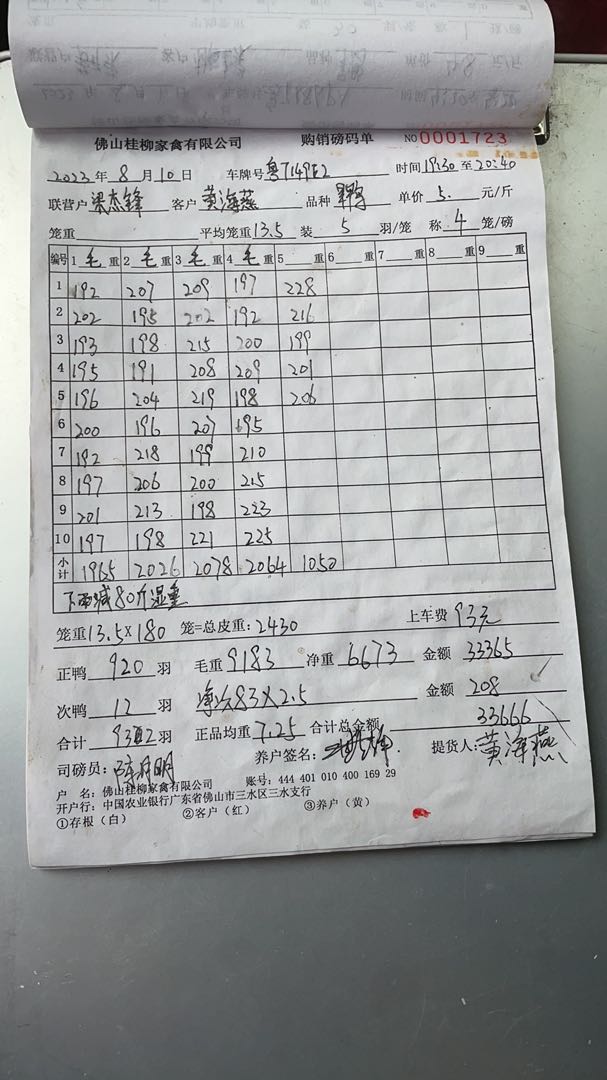 佛山桂柳家禽有限公司 购销磅码单 NO 0001723
2023 年 8 月 10 日 车牌号 粤T149E2 时间 19:30 至 20:40
联营户 梁杰锋 客户 黄海燕 品种 单价 5. 元/斤
笼重 平均笼重 13.5 装 5 羽/笼 称 4 笼/磅
编号 1 毛 重 2 毛 重 3 毛 重 4 毛 重 5 重 6 重 7 重 8 重 9 重
1 192 207 209 197 228
2 202 195 202 192 216
3 193 198 215 200 199
4 195 191 208 209 201
5 196 204 219 198 206
6 200 196 207 195
7 192 218 199 210
8 197 206 200 215
9 201 213 198 223
10 197 198 221 225
小计 1965 2026 2078 2064 1050
下雨减80斤湿重
笼重 13.5×180 笼=总皮重: 2430 上车费 93元
正鸭 920 羽 毛重 9183 净重 6673 金额 33365
次鸭 12 羽 净重83×2.5 金额 208
合计 932 羽 正品均重 7.25 合计总金额 33666
司磅员: 养户签名: 提货人: 黄海燕
户 名: 佛山桂柳家禽有限公司 账号: 444 401 010 400 169 29
开户行: 中国农业银行广东省佛山市三水区三水支行
①存根(白) ②客户(红) ③养户(黄)